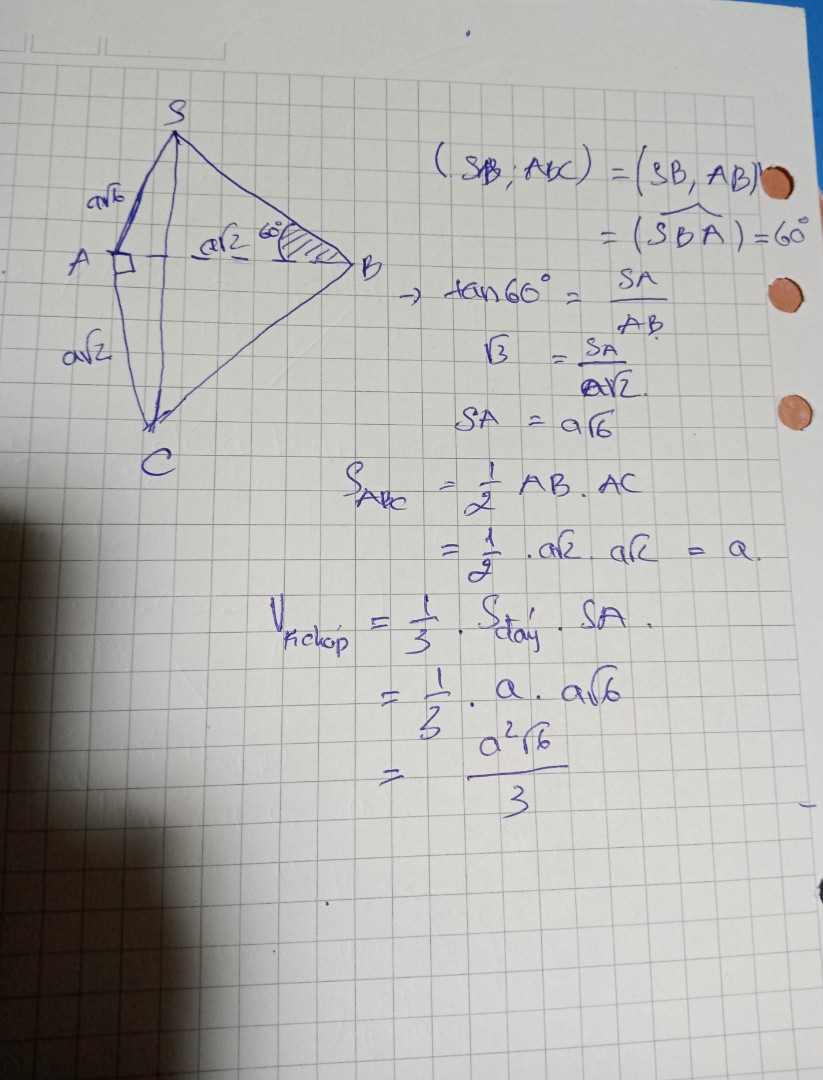 S
a√6
A
a√2
60°
B
a√2
C
(SB; ABC) = (SB, AB)
= (SBA) = 60°
→ tan60° = SA / AB
√3 = SA / a√2.
SA = a√6
S_ABC = 1/2 AB . AC
= 1/2 . a√2 . a√2 = a.
V_khchóp = 1/3 . S_đáy . SA .
= 1/3 . a . a√6
= a²√6 / 3